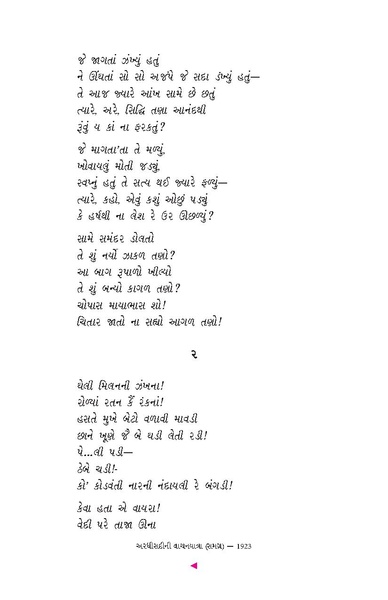 જે જાગતાં ઝંખ્યું હતું
ને ઊંઘતાં સો સો અજંપે જે સદા ડંખ્યું હતું—
તે આજ જ્યારે આંખ સામે છે છતું
ત્યારે, અરે, સિદ્ધિ તણા આનંદથી
રૂંવું ય કાં ના ફરકતું?
જે માગતા'તા તે મળ્યું,
ખોવાયલું મોતી જડ્યું,
સ્વપ્નું હતું તે સત્ય થઈ જ્યારે ફળ્યું—
ત્યારે, કહો, એવું કશું ઓછું પડ્યું
કે હર્ષથી ના લેશ રે ઉર ઊછળ્યું?
સામે સમંદર ડોલતો
તે શું નર્યો ઝાકળ તણો?
આ બાગ રૂપાળો ખીલ્યો
તે શું બન્યો કાગળ તણો?
ચોપાસ માયાભાસ શો!
ચિતાર જાતો ના સહ્યો આગળ તણો!
૨
ઘેલી મિલનની ઝંખના!
રોળ્યાં રતન કૈં રંકનાં!
હસતે મુખે બેટો વળાવી માવડી
છાને ખૂણે જૈ બે ઘડી લેતી રડી!
પે...લી પડી—
ઠેબે ચડી!-
કો' કોડવંતી નારની નંદાયલી રે બંગડી!
કેવા હતા એ વાયરા!
વેદી પરે તાજા ઊના
અરધીસદીની વાચનયાત્રા (સમગ્ર) — 1923